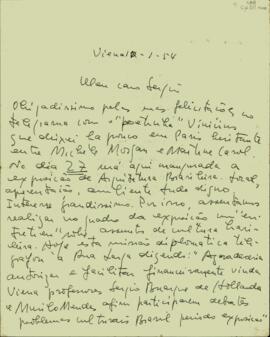 Viena 12-1-54
Meu caro Sergio
Obrigadissimo pelas suas felicitações no
telegrama com o "poetinha" Vinicius,
que deixei ha pouco em Paris hesitante
entre Michèle Morgan e Martine Carol.
No dia 27 será aqui inaugurada a
exposição de Arquitetura Brasileira. Local,
apresentação, ambiente tudo digno.
Interesse grandissimo. Por isso, assentamos
realizar no quadro da exposição um "en-
tretien" sobre assuntos de cultura brasi-
leira. Hoje esta missão diplomatica tele-
grafou à Sua dizendo: "Agradeceria
autorizar e facilitar financeiramente vinda
Viena professores Sergio Buarque de Hollanda
e Murilo Mendes afim participarem debates
problemas culturais Brasil periodo exposição"